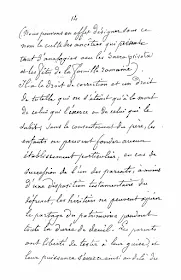 14
(nous pouvons en effet désigner sous ce
nom le culte des ancêtres qui présente
tant d'analogies avec les
et les de la famille romaine)
Il a le droit de correction et un droit
de tutelle, qui ne s'éteint qu'à la mort
de celui qui l'exerce ou de celui qui le
subit. Sans le consentement du père, les
enfants ne peuvent fonder aucun
établissement particulier, en cas de
succession de l'un des parents, à moins
d'une disposition testamentaire du
défunt, les héritiers ne peuvent opérer
le partage du patrimoine pendant
toute la durée du deuil. Les parents
ont liberté de tester à leur guise, et
leur puissance s'exerce ainsi au delà de